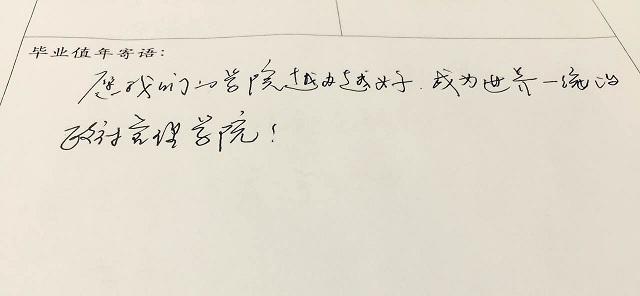 毕业值年寄语:
愿我们的学院越办越好,成为世界一流的
政府管理学院!